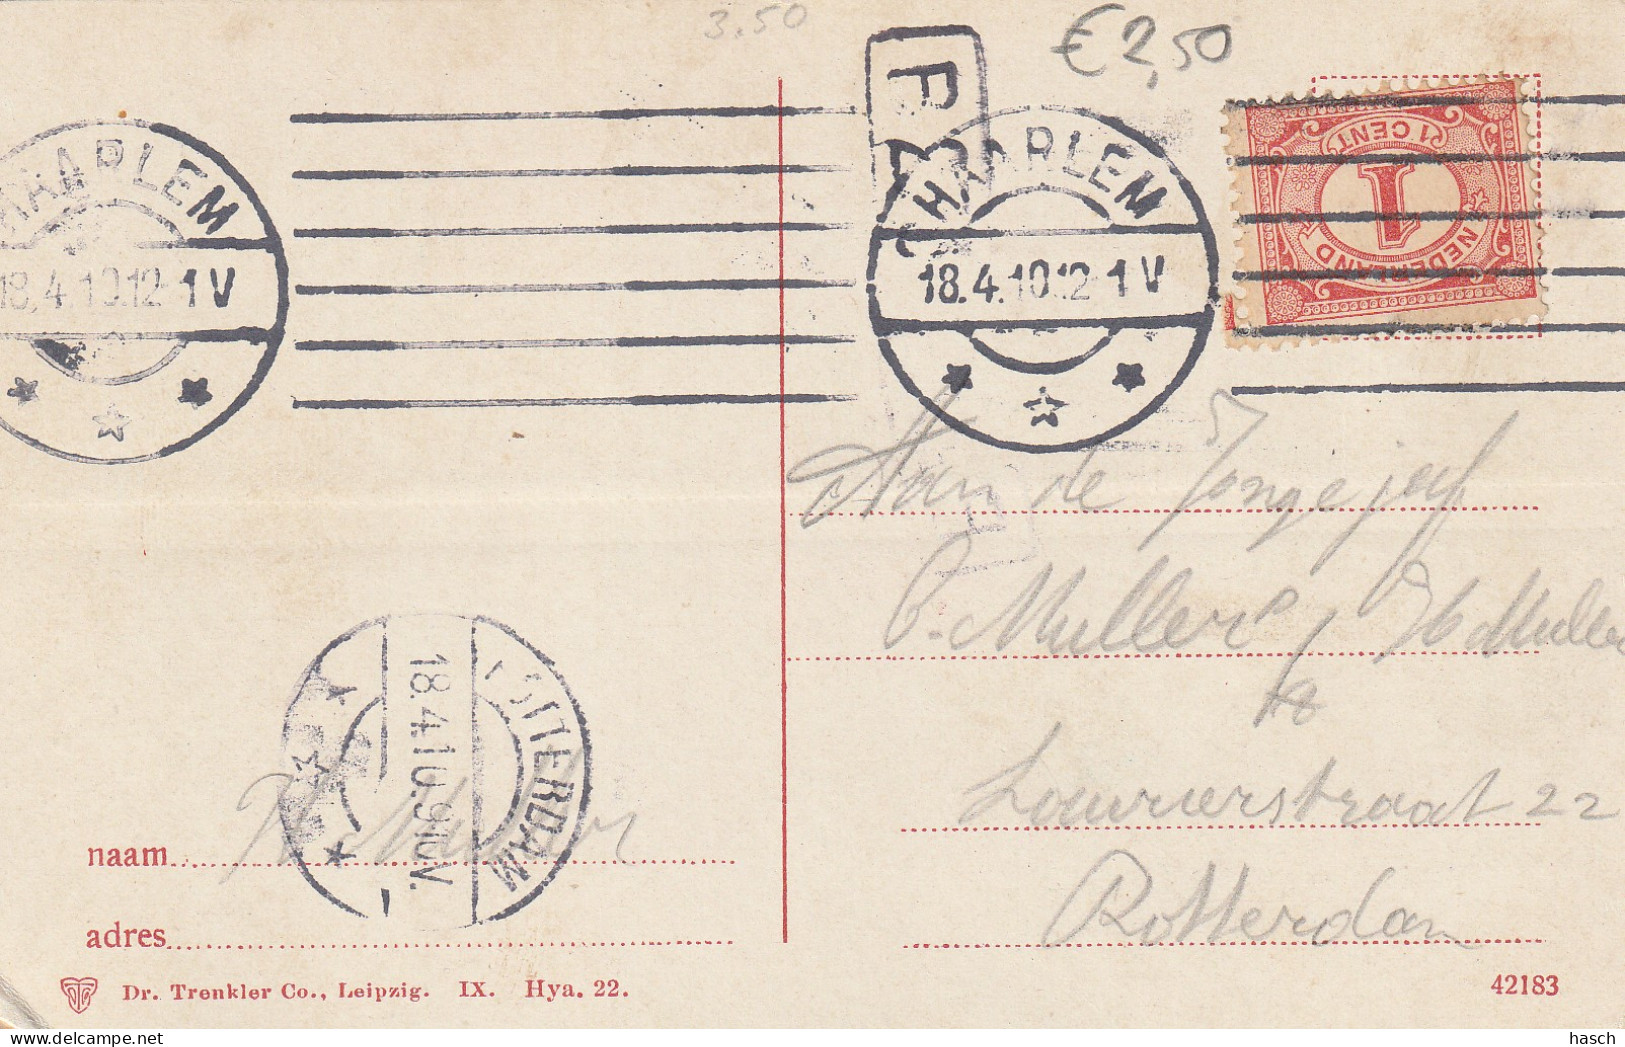 3.50
€2,50
HAARLEM
18.4.10.12-1V
HAARLEM
18.4.10.12-1V
1 CENT
1
NEDERLAND
Aan de
C. Muller
Laurierstraat 22
Rotterdam
ROTTERDAM
18.4.10.9-10V.
naam
adres
Dr. Trenkler Co., Leipzig. IX. Hya. 22.
42183
hasch